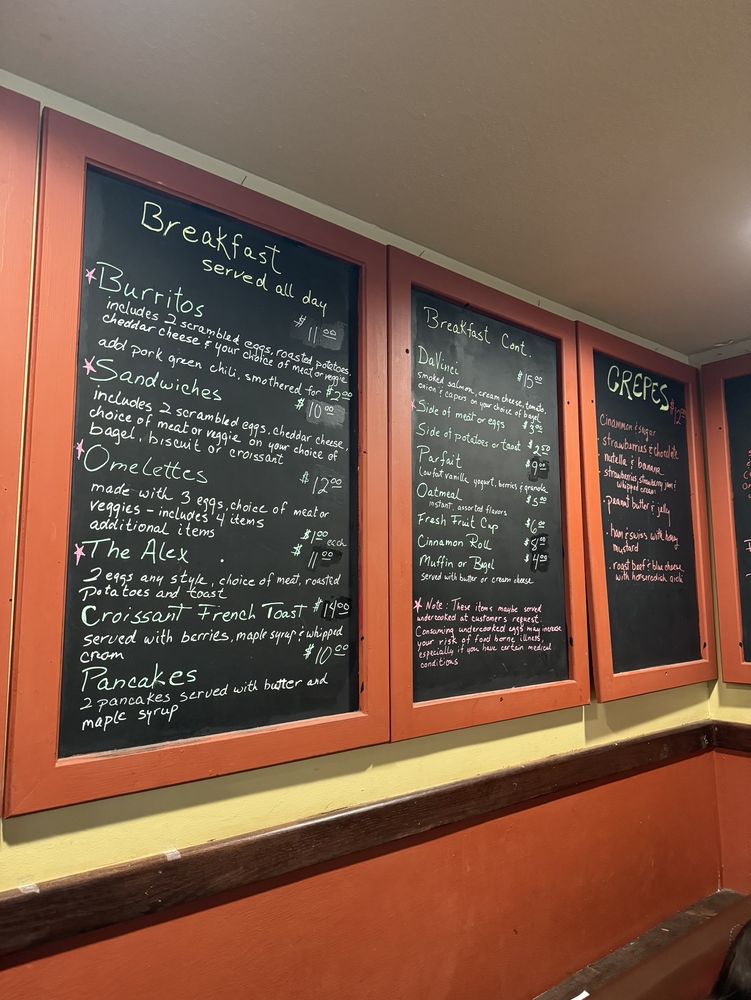 Breakfast
served all day
Burritos
$11.00
includes 2 scrambled eggs, roasted potatoes,
cheddar cheese & your choice of meat or veggie
add pork green chili, smothered for $2.00
Sandwiches
$10.00
includes 2 scrambled eggs, cheddar cheese,
choice of meat or veggie on your choice of
bagel, biscuit or croissant
Omelettes
$12.00
made with 3 eggs, choice of meat or
veggies - includes 4 items
additional items $1.00 each
The Alex $11.00
2 eggs any style, choice of meat, roasted
potatoes and toast
Croissant French Toast $14.00
served with berries, maple syrup & whipped
cream
Pancakes $10.00
2 pancakes served with butter and
maple syrup
Breakfast Cont.
DaVinci $15.00
smoked salmon, cream cheese, tomato,
onions & capers on your choice of bagel
Side of meat or eggs $3.00
Side of potatoes or toast $2.50
Parfait $9.00
lowfat vanilla yogurt, berries & granola
Oatmeal $5.00
instant, assorted flavors
Fresh Fruit Cup $6.00
Cinnamon Roll
Muffin or Bagel $4.00
served with butter or cream cheese
Note: These items maybe served
undercooked at customer's request.
Consuming undercooked eggs may increase
your risk of food borne illness,
especially if you have certain medical
conditions
CREPES $12.00
Cinnamon & sugar
· strawberries & chocolate
nutella & banana
· strawberries, strawberry jam &
whipped cream
· peanut butter & jelly
· ham & swiss with honey
mustard
· roast beef & blue cheese
with horseradish aioli